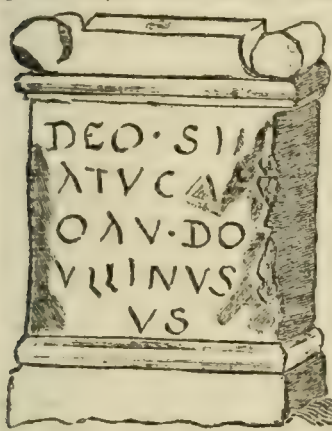 DEO · SII
ΛTVCΛ
OΛV · DO
VLLINVS
VS